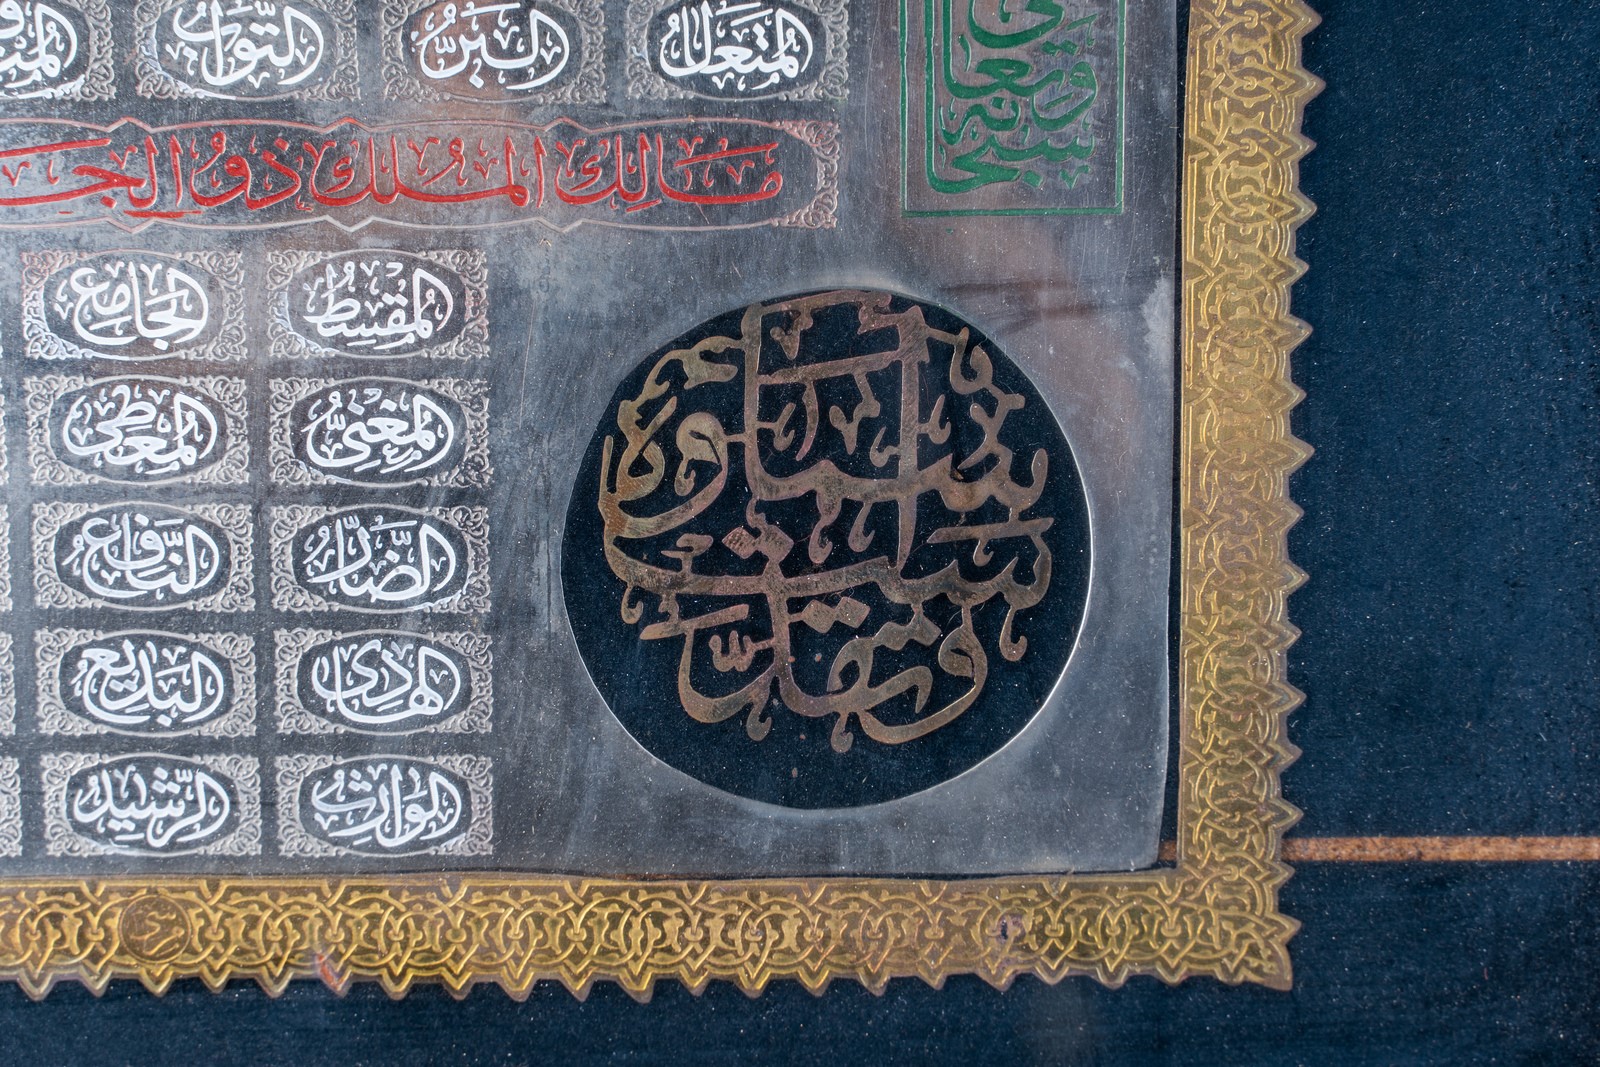 المتعال البر التواب
سبحانه وتعالى
مالك الملك ذو الجـ
المقسط الجامع
المغني المعطي
الضار النافع
الهادي البديع
الوارث الرشيد